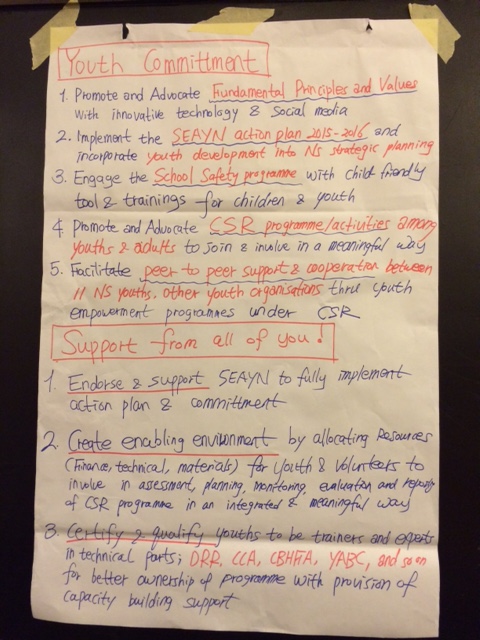 Youth Committment
1. Promote and Advocate Fundamental Principles and Values
with innovative technology & Social media
2. Implement the SEAYN action plan 2015-2016 and
incorporate youth development into NS strategic planning
3. Engage the School Safety programme with child friendly
tool & trainings for children & youth
4 Promote and Advocate CSR programme/activities among
youths & adults to join & involve in a meaningful way
5. Facilitate peer to peer support & cooperation between
11 NS youths, other youth organisations thru youth
empowerment programmes under CSR
Support from all of you!
1. Endorse & support SEAYN to fully implement
action plan & committment
2. Create enabling environment by allocating Resources
(Finance, technical, materials) for Youth & Volunteers to
involve in assessment, planning, monitoring, evaluation and
of CSR programme in an integrated & meaningful way
3. Certify & qualify youths to be trainers and experts
in technical parts; DRR, CCA, CBHFA, YABC, and so on
for better ownership of programme with provision of
capacity building support